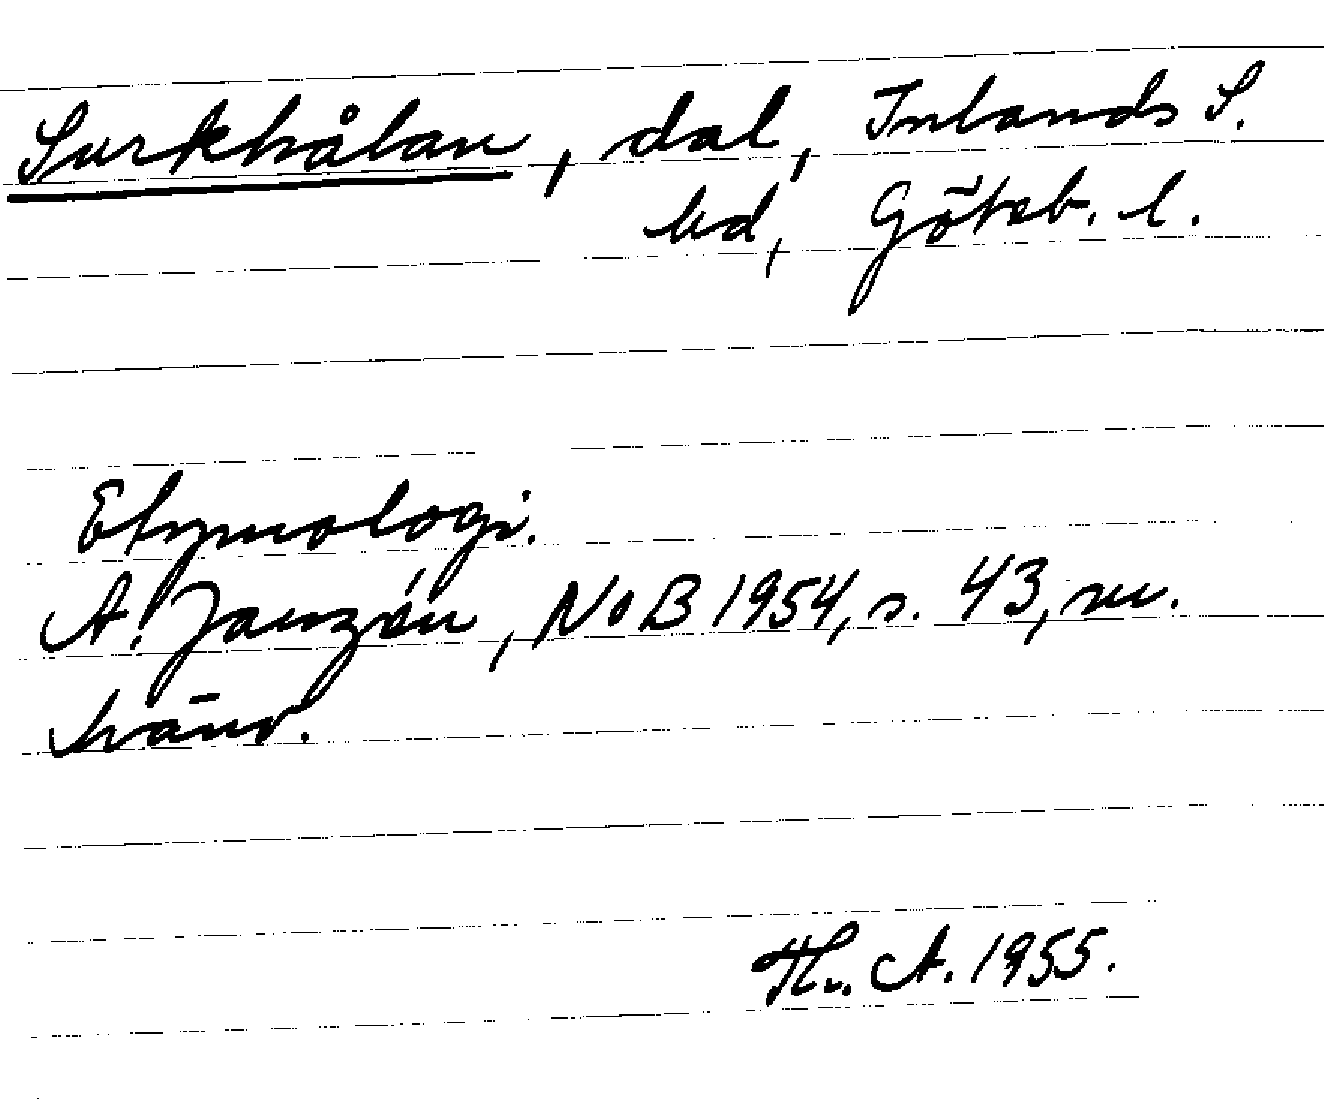 Surkhålan, dal, Inlands S.
hd, Göteb. l.
Etymologi.
A. Janzén, NoB 1954, s. 43, m.
hänv.
Th. A. 1955.